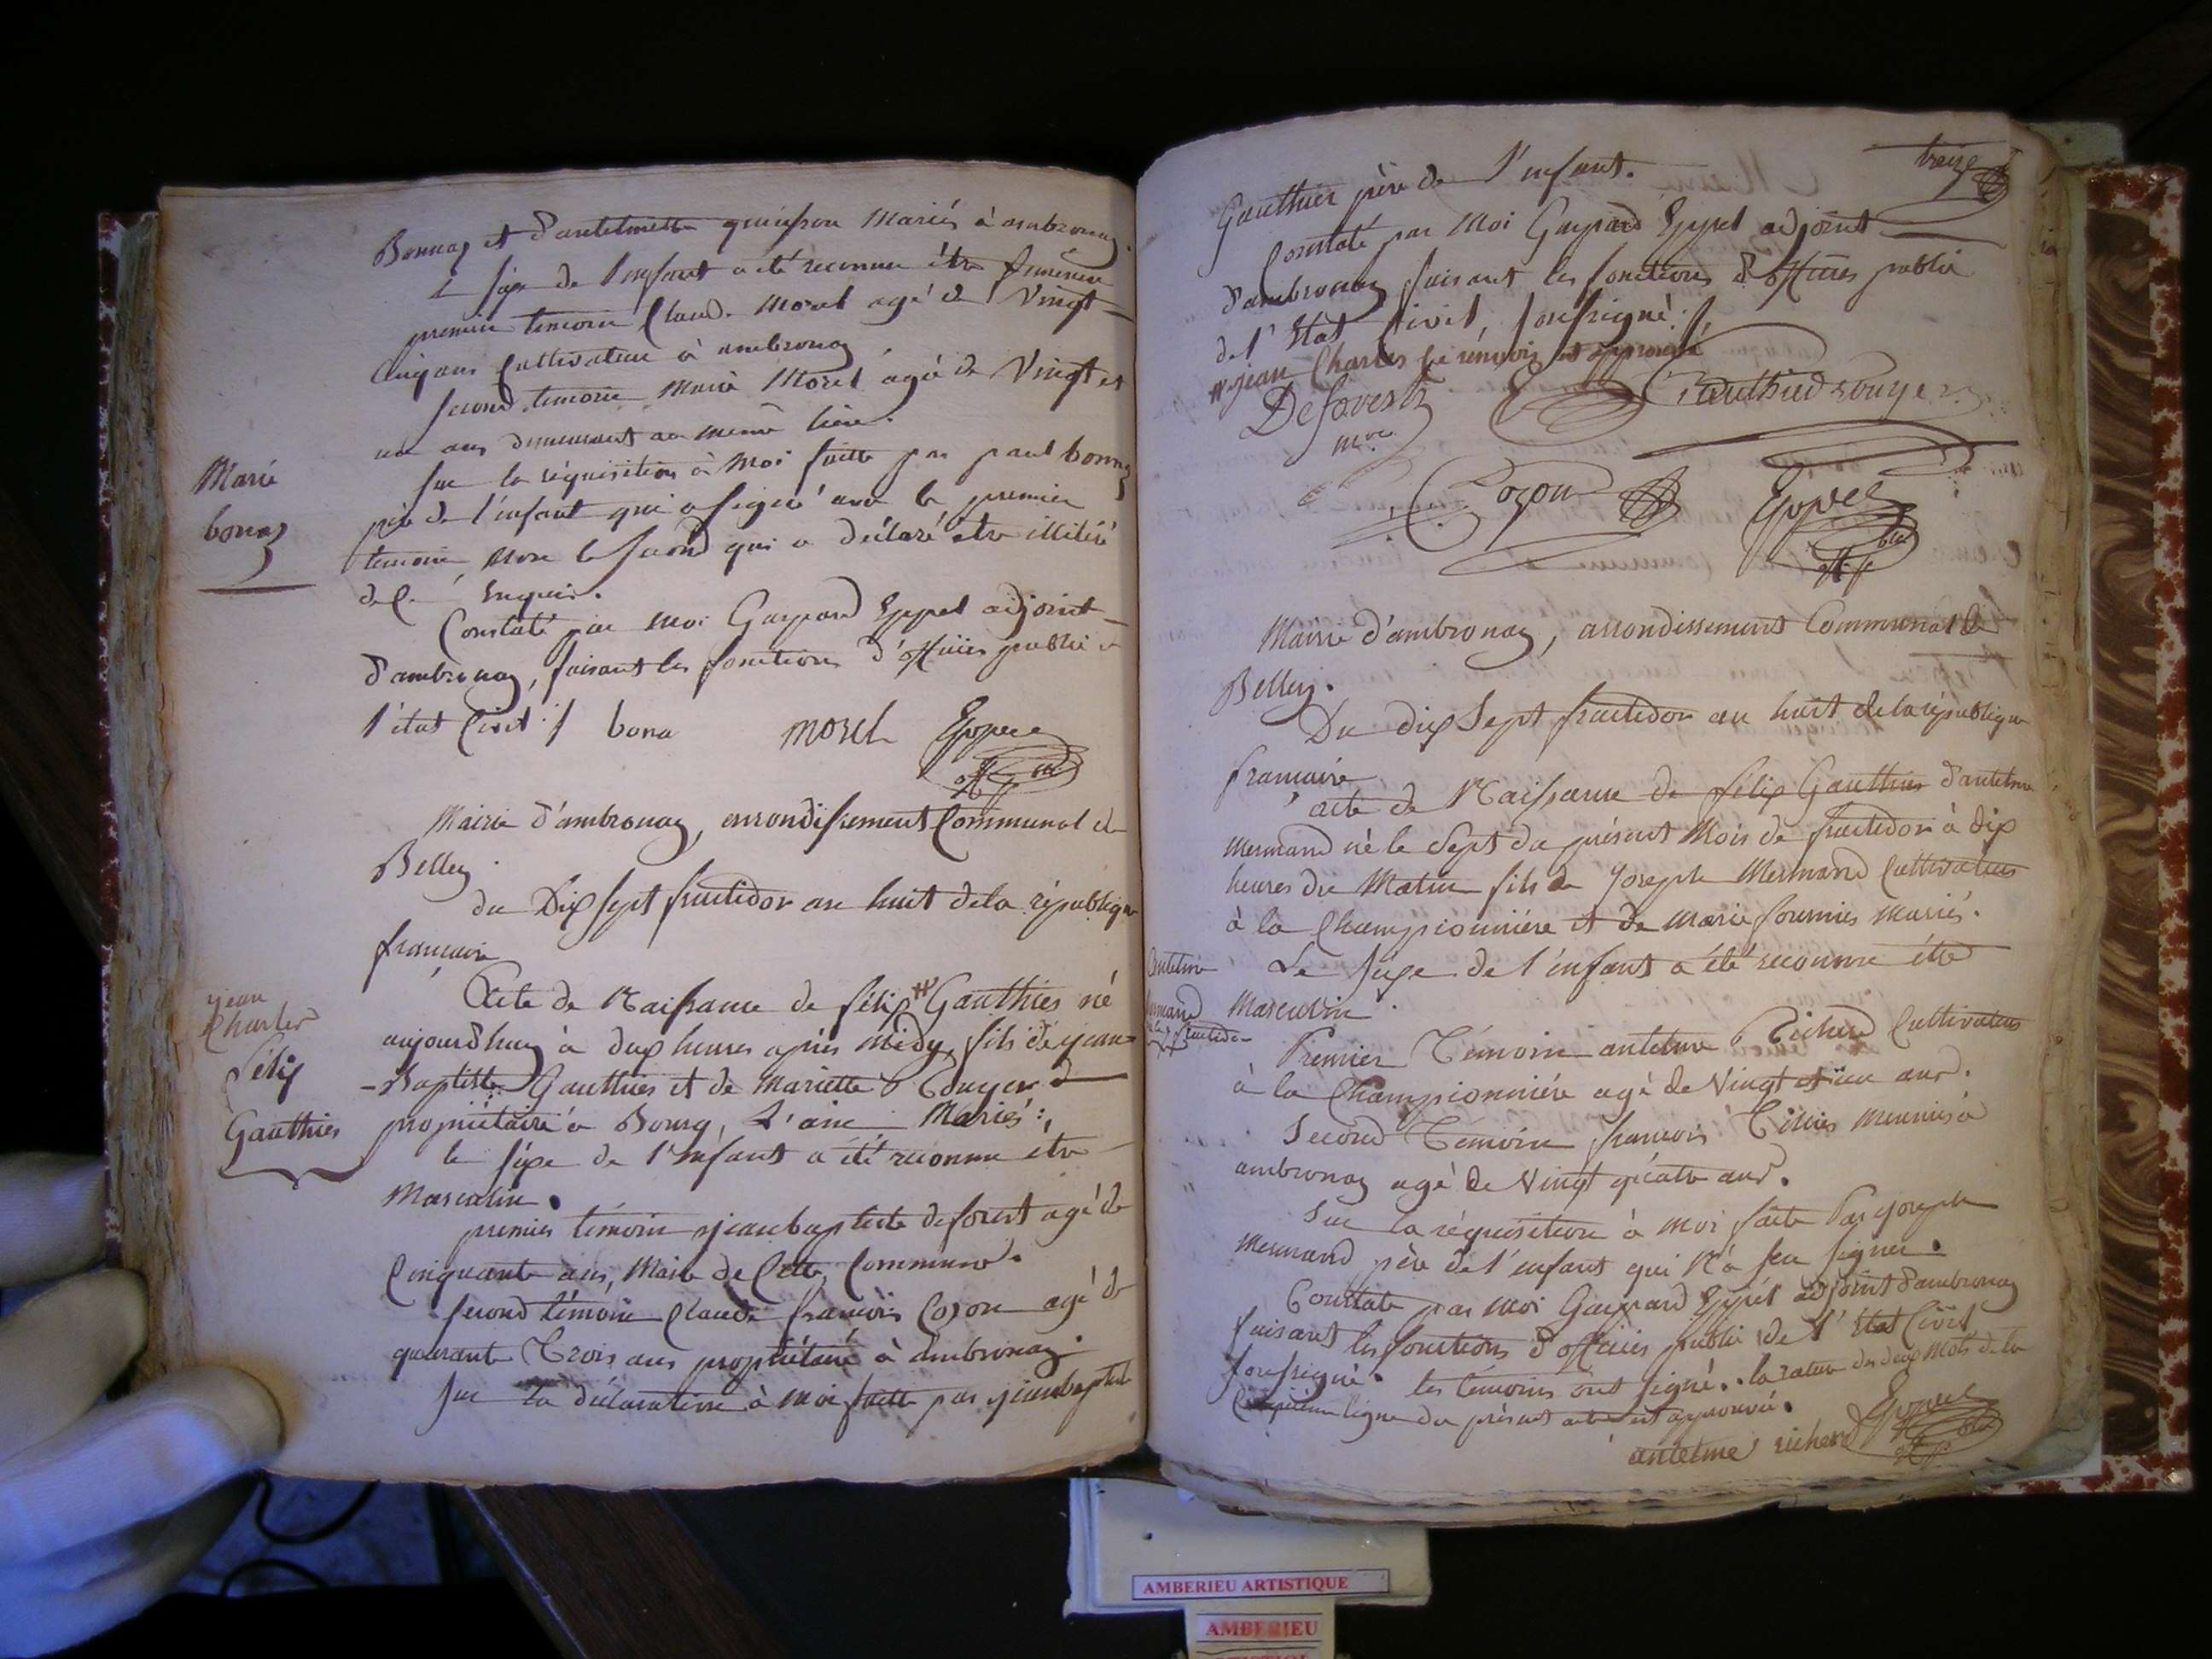 Bonnaz et d'antelmette quinson Mariés à ambronay.
Le sexe de l'enfant a été reconnu être feminin
premier temoin Claude Morel agé de Vingt
cinq ans Cultivateur à ambronay
second temoin Marie Morel agée de Vingt et
un ans demeurant au même lieu.
Marie
bonaz
sur la réquisition à Moi faitte par paul bonnaz
père de l'enfant qui a signé avec le premier
temoin, non le second qui a déclaré être illitéré
de ce enquis.
Constaté par moi Gaspard Eppel adjoint
d'ambronay, faisant les fonctions d'officier public de
l'état Civil :/ bona morel Eppel
off. p. blic
Mairie d'ambronay, arrondissement Communal de
Belley.
du Dix sept fructidor an huit de la république
française
jean
Charles
Félix
Gauthier
Acte de Naissance de félix # Gauthier né
aujourdhuy à deux heures après Midy, fils de jean=
-Baptiste Gauthier et de Mariette Rouyer
propriétaire à Bourg, L'ain Mariés :,
le sexe de l'enfant a été reconnu etre
Masculin.
premier témoin jean baptiste deforest agé de
Cinquante ans, Maire de Cette Commune.
second témoin Claude françois Cozon agé de
quarante Trois ans propriétaire à ambronay
sur la déclaration à moi faitte par jean baptiste
treize
Gauthier père de l'enfant.
Constaté par Moi Gaspard Eppel adjoint
d'ambronay faisant les fonctions d'officier public
de l'Etat Civil, soussigné :/,
# jean Charles ce renvoi est approuvé
Deforest Gauthier rouyer
mre
Cozon Eppel
off. p. blic
Mairie d'ambronay, arrondissement Communal de
Belley.
Du dix Sept fructidor an huit de la république
française
acte de Naissance de félix Gauthier d'antelme
Mermand né le Sept du présent Mois de fructidor à dix
heures du Matin fils de Joseph Mermand Cultivateur
à la Championnière et de Marie fournier Mariés.
Antelme
Mermand
fructidor
Le sexe de l'enfant a été reconnu être
Masculin
Premier Témoin antelme Richerd Cultivateur
à la Championnière agé de Vingt et un ans.
Second Témoin françois Meunier à
ambronay agé de Vingt quatre ans.
Sur la réquisition à moi faite Par joseph
Mermand père de l'enfant qui N'a seu signer.
Constaté par moi Gaspard Eppel adjoint d'ambronay
faisant les fonctions d'officier public de l'Etat Civil
soussigné. les témoins ont signé. la rature des deux Mots de la
ligne du présent acte est approuvée.
antelme richerd Eppel
off. p. blic
AMBERIEU ARTISTIQUE
AMBERIEU